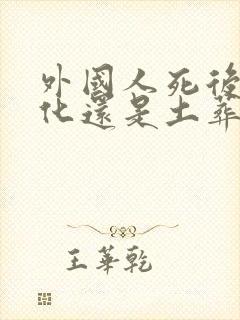 外國人死後
化還是土葬
王華乾